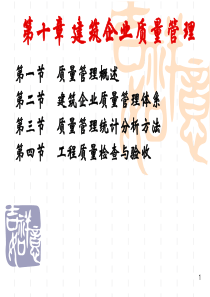 第十章 建筑企业质量管理
第一节 质量管理概述
第二节 建筑企业质量管理体系
第三节 质量管理统计分析方法
第四节 工程质量检查与验收
吉祥如意
1